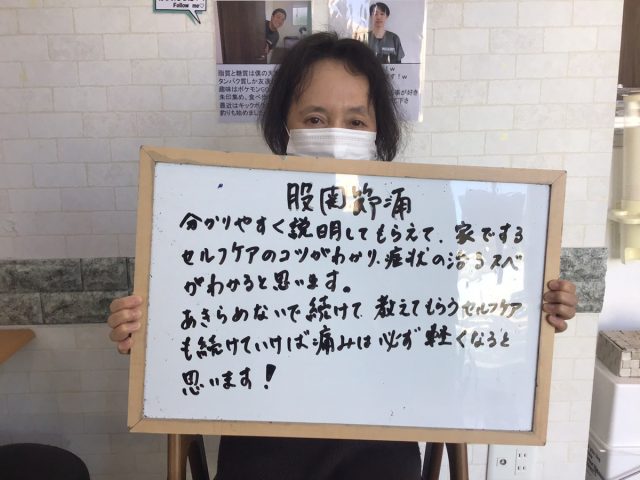 Follow me♡
脂質と糖質は僕の
タンパク質しか友達
趣味はポケモンGO
朱印集め、食べ
最近はキックボ
釣りも始めまし
股関節痛
分かりやすく説明してもらえて、家でする
セルフケアのコツがわかり、症状の治るスベ
がわかると思います。
あきらめないで続けて、教えてもらうセルフケア
も続けていけば痛みは必ず軽くなると
思います!